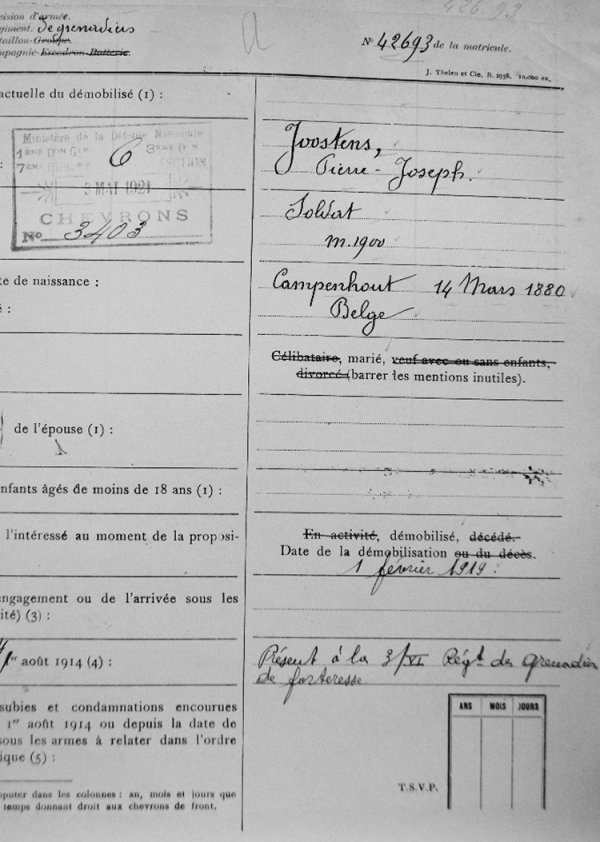 ision d'armée.
giment. de grenadiers
taillon-Groupe
mpagnie-Escadron-Batterie.
a
42693
Nº 42693 de la matricule.
J. Thelen et Cie. B. 1938. 10.000 ex.
actuelle du démobilisé (1) :
Joostens,
Pierre-Joseph.
Ministère de la Défense Nationale
1ère Don Gle 6 3ème Don
7ème SECTION
3 MAI 1921
CHEVRONS
No 3403
Soldat
m. 1900
te de naissance : Campenhout 14 Mars 1880
é : Belge
Célibataire, marié, veuf avec ou sans enfants,
divorcé (barrer les mentions inutiles).
de l'épouse (1) :
nfants âgés de moins de 18 ans (1) :
l'intéressé au moment de la proposi- En activité, démobilisé, décédé.
Date de la démobilisation ou du décès.
1 février 1919.
engagement ou de l'arrivée sous les
ité) (3) :
1er août 1914 (4) : Présent à la 3/VI Régt des Grenadier
de forteresse
subies et condamnations encourues
1er août 1914 ou depuis la date de
sous les armes à relater dans l'ordre
ique (5) :
ANS MOIS JOURS
T.S.V.P.
mputer dans les colonnes : an, mois et jours que
temps donnant droit aux chevrons de front.